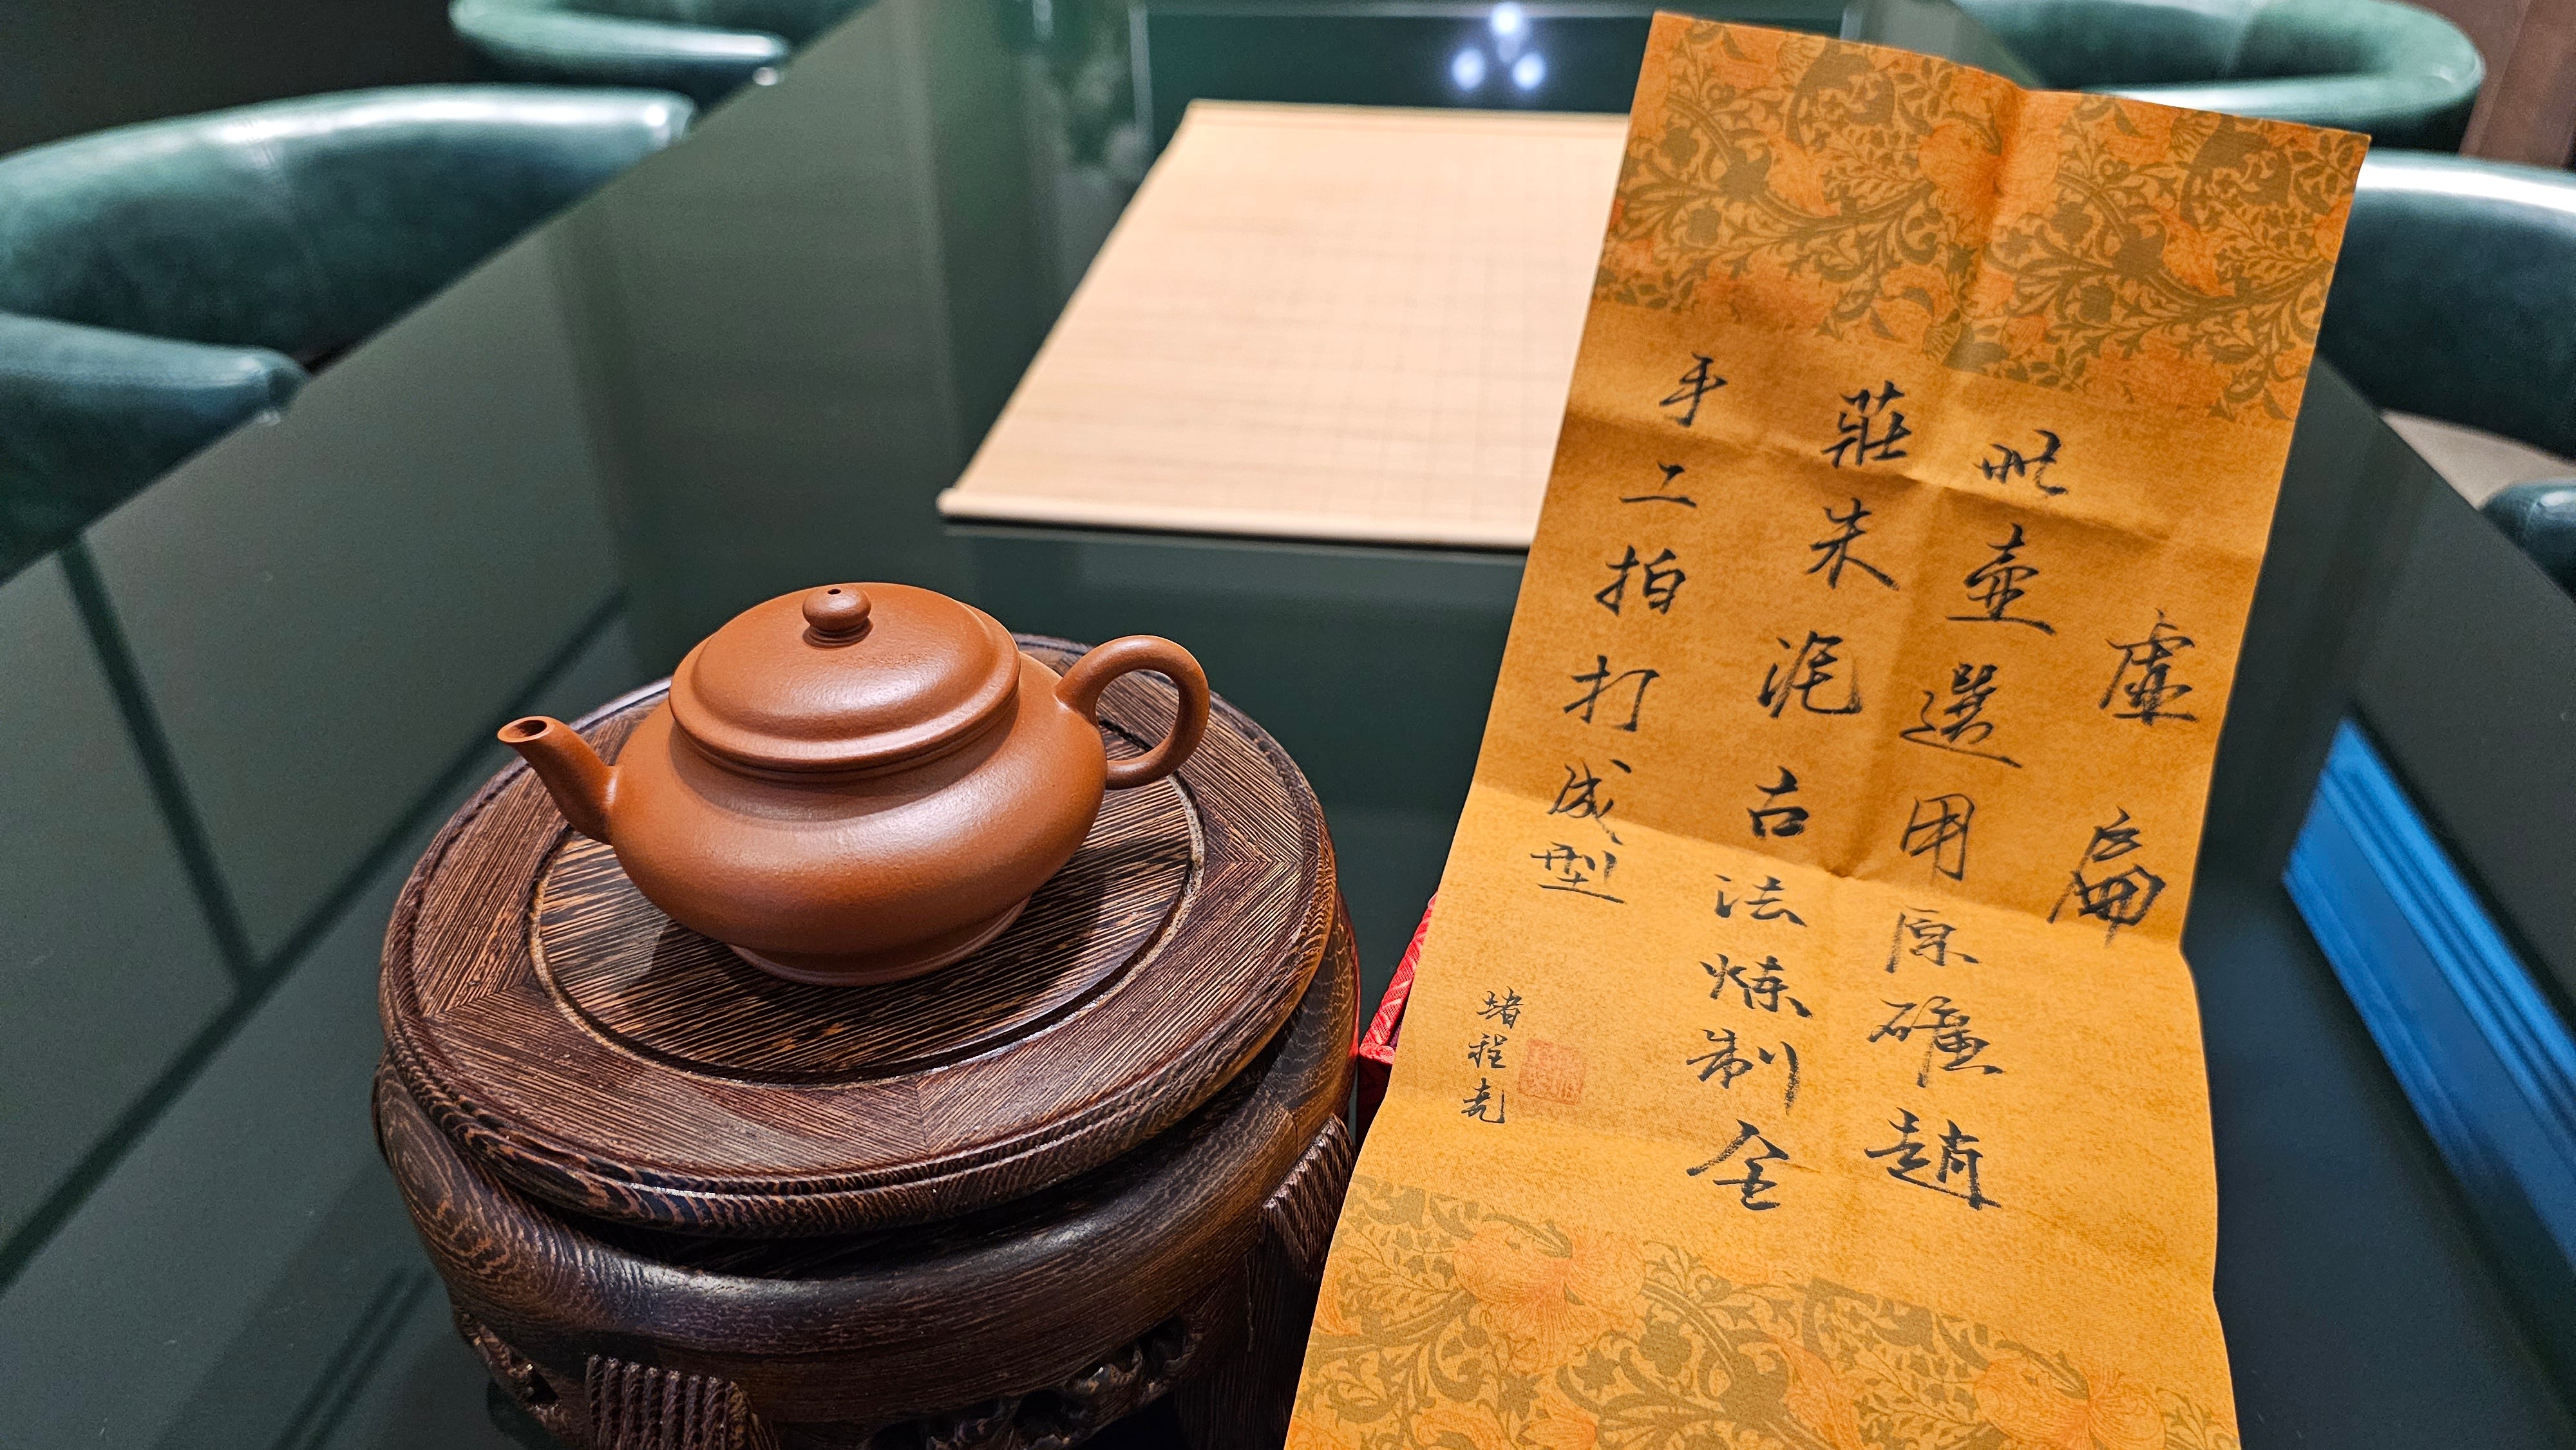 虛扁
此壺選用原礦趙
莊朱泥古法煉制全
手工拍打成型
堵程堯